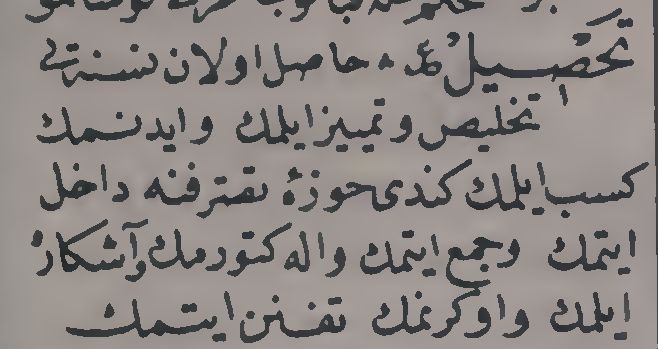 تحصیل ع ه حاصل اولان نسنه‌نی
تخلیص و تمییز ایلمك و ایدنمك
كسب ایلمك كندی حوزهٔ تصرفنه داخل
ایتمك و جمع ایتمك و اله كتورمك و آشكاره
ایلمك و اوكرنمك تفنن ایتمك